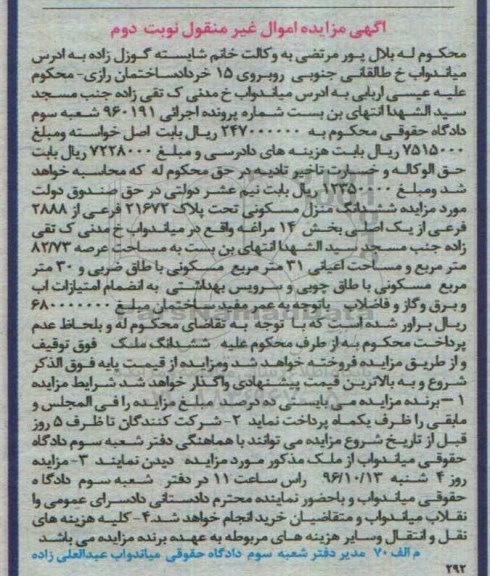 آگهی مزایده اموال غیر منقول نوبت دوم
محکوم له بلال پور مرتضی به وکالت خانم شایسته گوزل زاده به ادرس
میاندواب خ طالقانی جنوبی روبروی ۱۵ خردادساختمان رازی- محکوم
علیه عیسی اربابی به ادرس میاندواب خ مدنی ک تقی زاده جنب مسجد
سید الشهدا انتهای بن بست شماره پرونده اجرائی ۹۶۰۱۹۱ شعبه سوم
دادگاه حقوقی محکوم به ۲۴۷۰۰۰۰۰۰ ریال بابت اصل خواسته ومبلغ
۷۵۱۵۰۰۰ ریال بابت هزینه های دادرسی و مبلغ ۷۲۲۸۰۰۰ ریال بابت
حق الوکاله و خسارت تاخیر تادیه در حق محکوم له که محاسبه خواهد
شد ومبلغ ۱۲۳۵۰۰۰۰ ریال بابت نیم عشر دولتی در حق صندوق دولت
مورد مزایده ششدانگ منزل مسکونی تحت پلاک ۲۱۶۷۲ فرعی از ۲۸۸۸
فرعی از یک اصلی بخش ۱۴ مراغه واقع در میاندواب خ مدنی ک تقی
زاده جنب مسجد سید الشهدا انتهای بن بست به مساحت عرصه ۸۲/۷۳
متر مربع و مساحت اعیانی ۳۱ متر مربع مسکونی با طاق ضربی و ۳۰ متر
مربع مسکونی با طاق چوبی و سرویس بهداشتی به انضمام امتیازات اب
و برق و گاز و فاضلاب باتوجه به عمر مفید ساختمان مبلغ ۶۸۰۰۰۰۰۰۰
ریال براور شده است که با توجه به تقاضای محکوم له و بلحاظ عدم
پرداخت محکوم به از طرف محکوم علیه ششدانگ ملک فوق توقیف
و از طریق مزایده فروخته خواهد شد ومزایده از قیمت پایه فوق الذکر
شروع و به بالاترین قیمت پیشنهادی واگذار خواهد شد شرایط مزایده
۱- برنده مزایده می بایستی ده درصد مبلغ مزایده را فی المجلس و
مابقی را ظرف یکماه پرداخت نماید ۲- شرکت کنندگان تا ظرف ۵ روز
قبل از تاریخ شروع مزایده می توانند با هماهنگی دفتر شعبه سوم دادگاه
حقوقی میاندواب از ملک مذکور مورد مزایده دیدن نمایند ۳- مزایده
روز ۴ شنبه ۹۶/۱۰/۱۳ راس ساعت ۱۱ در دفتر شعبه سوم دادگاه
حقوقی میاندواب و باحضور نماینده محترم دادستانی دادسرای عمومی وا
نقلاب میاندواب و متقاضیان خرید انجام خواهد شد.۴- کلیه هزینه های
نقل و انتقال وسایر هزینه های مربوطه به عهده برنده مزایده می باشد
م الف ۷۰ مدیر دفتر شعبه سوم دادگاه حقوقی میاندواب عبدالعلی زاده
۲۹۲